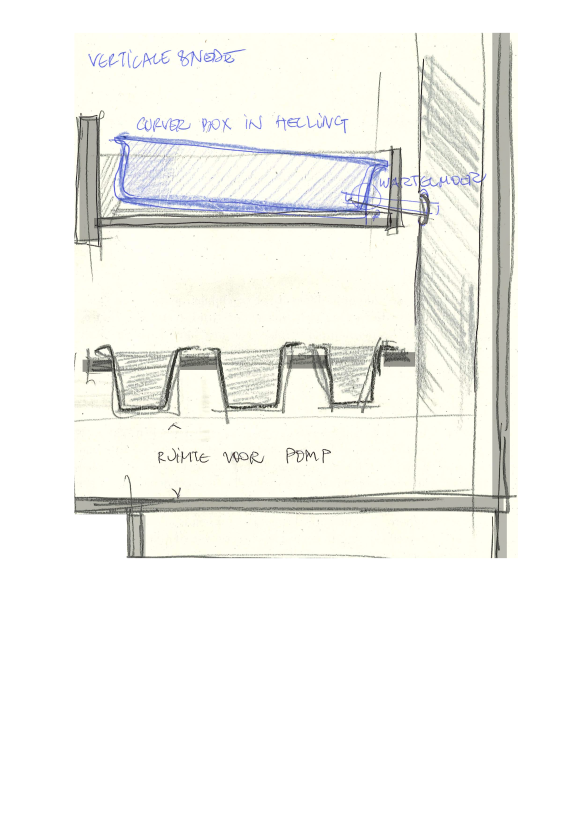 VERTICALE SNEDE
CURVER BOX IN HELLING
WARTELMOER
RUIMTE VOOR POMP